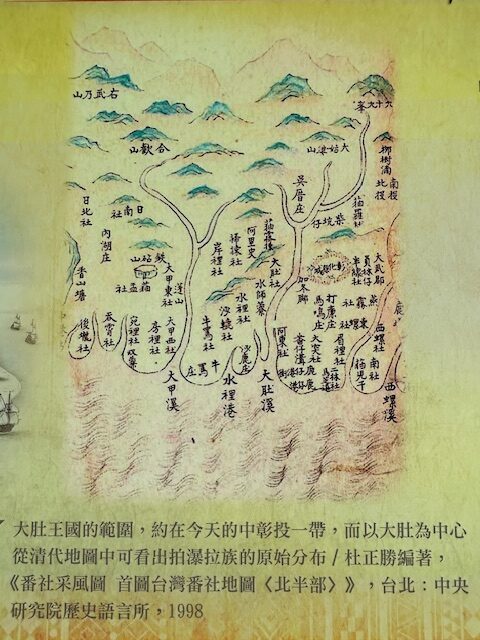 右武乃山
六十九峯
合歡山
大姑婆山
吳厝庄
柴坑仔
貓羅社
南投
北投
日北社
日南社
內湖庄
岸裡社
掃捒社
阿里史
貓霧捒
大肚社
水師寮
水裡社
沙轆社
牛罵社
大甲東社
大甲西社
房裡社
宛裡社
吞霄社
後壠社
貓盂社
鉄砧山
彰化縣城
半線社
大武郡
打廉庄
馬鳴庄
阿東社
大突社
眉裡社
二林社
西螺社
南社
貓兒干
沙鹿庄
牛罵庄
大甲溪
水裡港
大肚溪
西螺溪
大肚王國的範圍，約在今天的中彰投一帶，而以大肚為中心
從清代地圖中可看出拍瀑拉族的原始分布 / 杜正勝編著，
《番社采風圖 首圖台灣番社地圖〈北半部〉》，台北：中央
研究院歷史語言所，1998